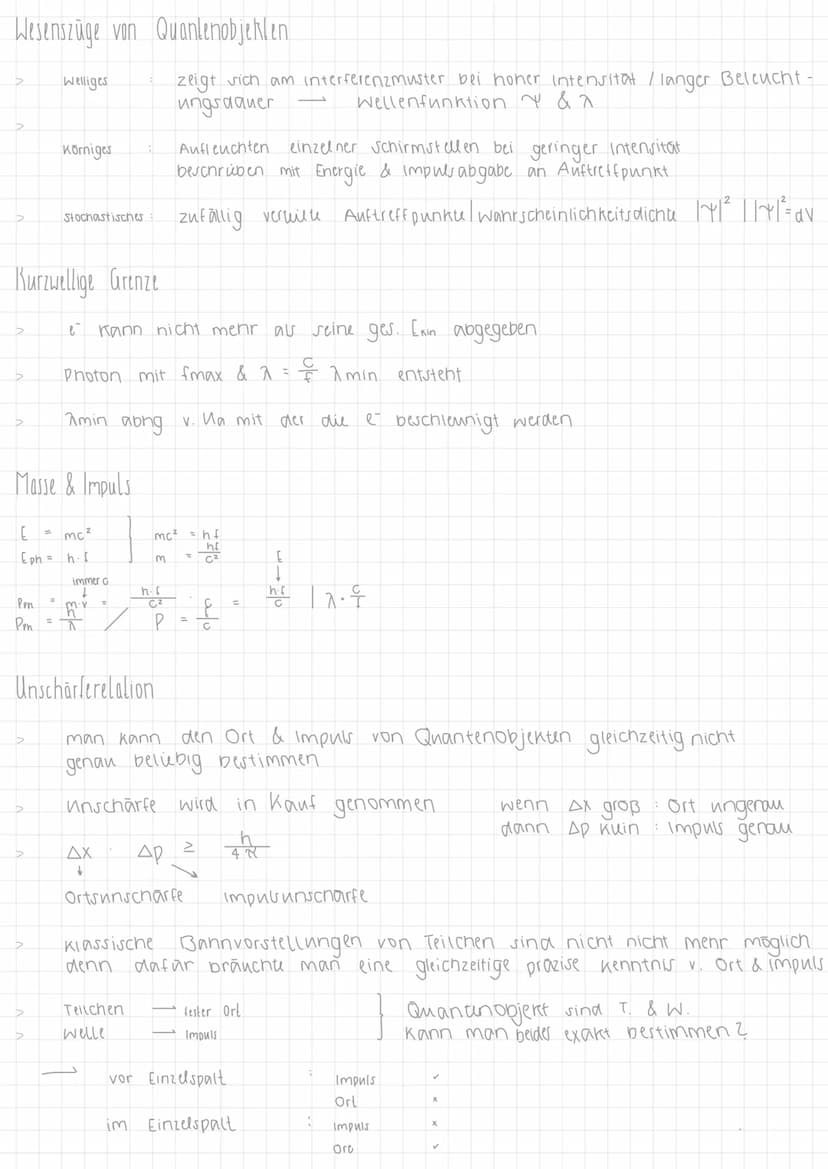 Wesenszüge von Quantenobjekten
> Welliges : zeigt sich am Interferenzmuster bei hoher Intensität / langer Beleucht-
ungsdauer → Wellenfunktion Ψ & λ
>
Körniges : Aufleuchten einzelner Schirmstellen bei geringer Intensität
beschrieben mit Energie & Impulsabgabe an Auftreffpunkt
> Stochastisches : zufällig verteilte Auftreffpunkte | Wahrscheinlichkeitsdichte |Ψ|² | |Ψ|² = dV
Kurzwellige Grenze
> e⁻ kann nicht mehr als seine ges. Ekin abgegeben
> Photon mit fmax & λ = c/f λmin entsteht
> λmin abhg v. Ua mit der die e⁻ beschleunigt werden
Masse & Impuls
E = mc² } mc² = hf
Eph = h·f m = hf/c² E
immer c ↓
Pm = m·v = h·f/c² · = h·f/c | λ · c/f
Pm = h/λ / P = E/c
Unschärferelation
> man kann den Ort & Impuls von Quantenobjekten gleichzeitig nicht
genau beliebig bestimmen
> Unschärfe wird in Kauf genommen wenn Δx groß : Ort ungenau
dann Δp klein : Impuls genau
> Δx · Δp ≥ h/4π
Ortsunschärfe Impulsunschärfe
> klassische Bahnvorstellungen von Teilchen sind nicht nicht mehr möglich
denn dafür bräuchte man eine gleichzeitige präzise Kenntnis v. Ort & Impuls
> Teilchen → fester Ort } Quantenobjekt sind T. & W.
> Welle → Impuls kann man beides exakt bestimmen?
→ vor Einzelspalt : Impuls ✓
Ort x
im Einzelspalt : Impuls x
Ort ✓